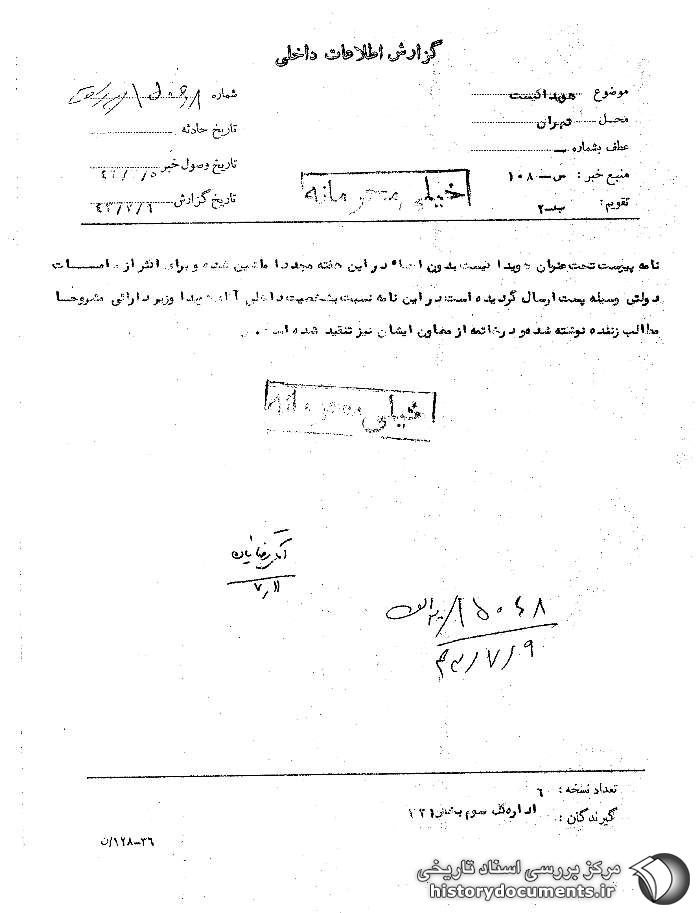 گزارش اطلاعات داخلی
موضوع هویدا کیست
محل تهران
عطف بشماره
منبع خبر: س-۱۰۸۰
تقویم: ب-۲
شماره ۱۵۰۶۸/
تاریخ حادثه
تاریخ وصول خبر
تاریخ گزارش
خیلی محرمانه
نامه پیوست تحت عنوان هویدا کیست بدون امضاء در این هفته مجددا ماشین شده و برای اکثر از مقامات
دولتی وسیله پست ارسال گردیده است در این نامه نسبت بشخصیت داخلی آقای هویدا وزیر دارائی مشروحا
مطالب زننده نوشته شده و در خاتمه از معاون ایشان نیز تنقید شده است.
خیلی محرمانه
۷/۱۱
۱۵۰۶۸/
۴۳/۷/۹
تعداد نسخه: ۶
گیرندگان: اداره کل سوم بخش ۳۲۱
۳۶-۱۲۸/ن
مرکز بررسی اسناد تاریخی
historydocuments.ir